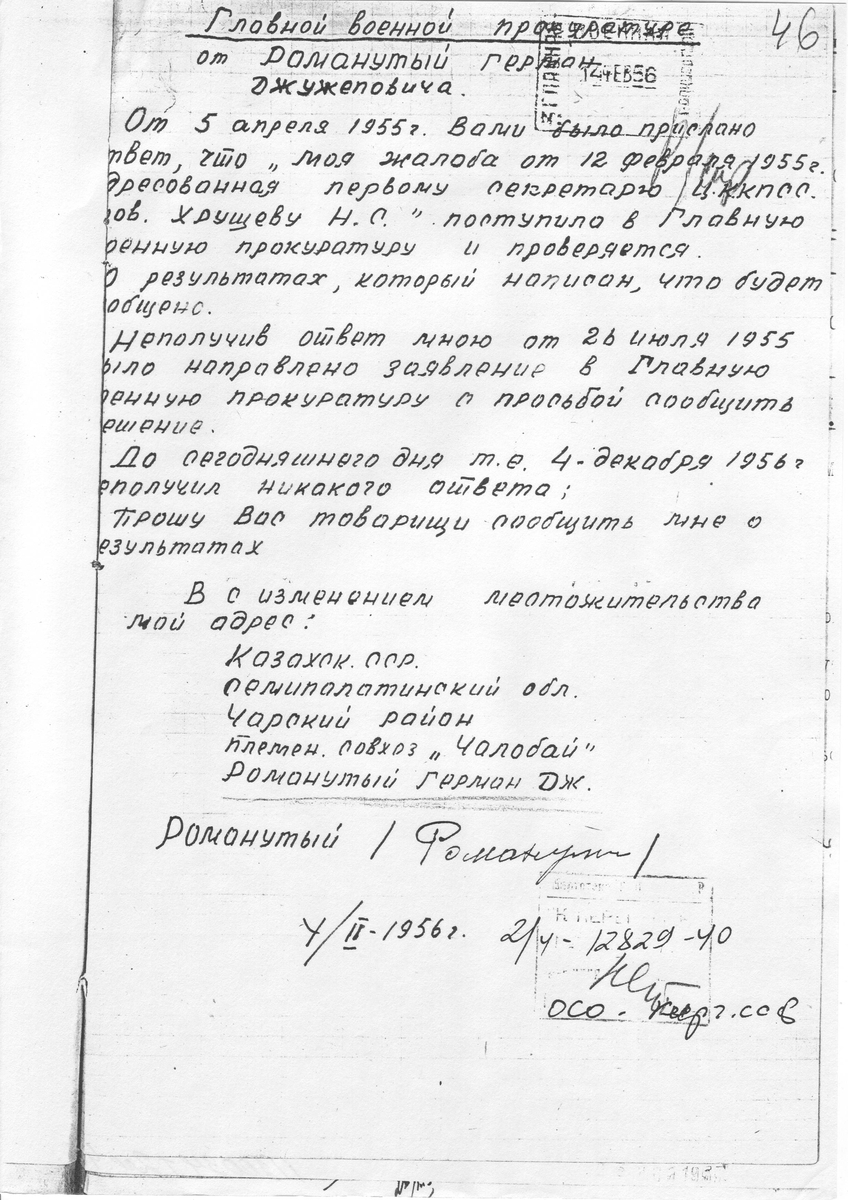 46
Главной военной прокуратуре
от Романутый Герман
Джужеповича.
14 ФЕВ 56
От 5 апреля 1955г. Вами было прислано
твет, что „моя жалоба от 12 февраля 1955г.
дресованная первому секретарю ЦККПСС.
ов. Хрущеву Н.С.” поступила в Главную
енную прокуратуру и проверяется.
О результатах, который написан, что будет
общено.
Неполучив ответ мною от 26 июля 1955
ыло направлено заявление в Главную
енную прокуратуру с просьбой сообщить
ешение.
До сегодняшнего дня т.е. 4-декабря 1956г
еполучил никакого ответа;
Прошу Вас товарищи сообщить мне о
езультатах
В с изменением местожительства
мой адрес:
Казахск. сср.
Семипалатинский обл.
Чарский район
племен. совхоз „Чалобай”
Романутый Герман Дж.
Романутый / Романутый /
4/II-1956г. 2/4-12829-40
ОСО - Кирг.ССР